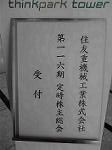 thinkpark tower
住友重機械工業株式会社
第一一六期 定時株主総会
受付